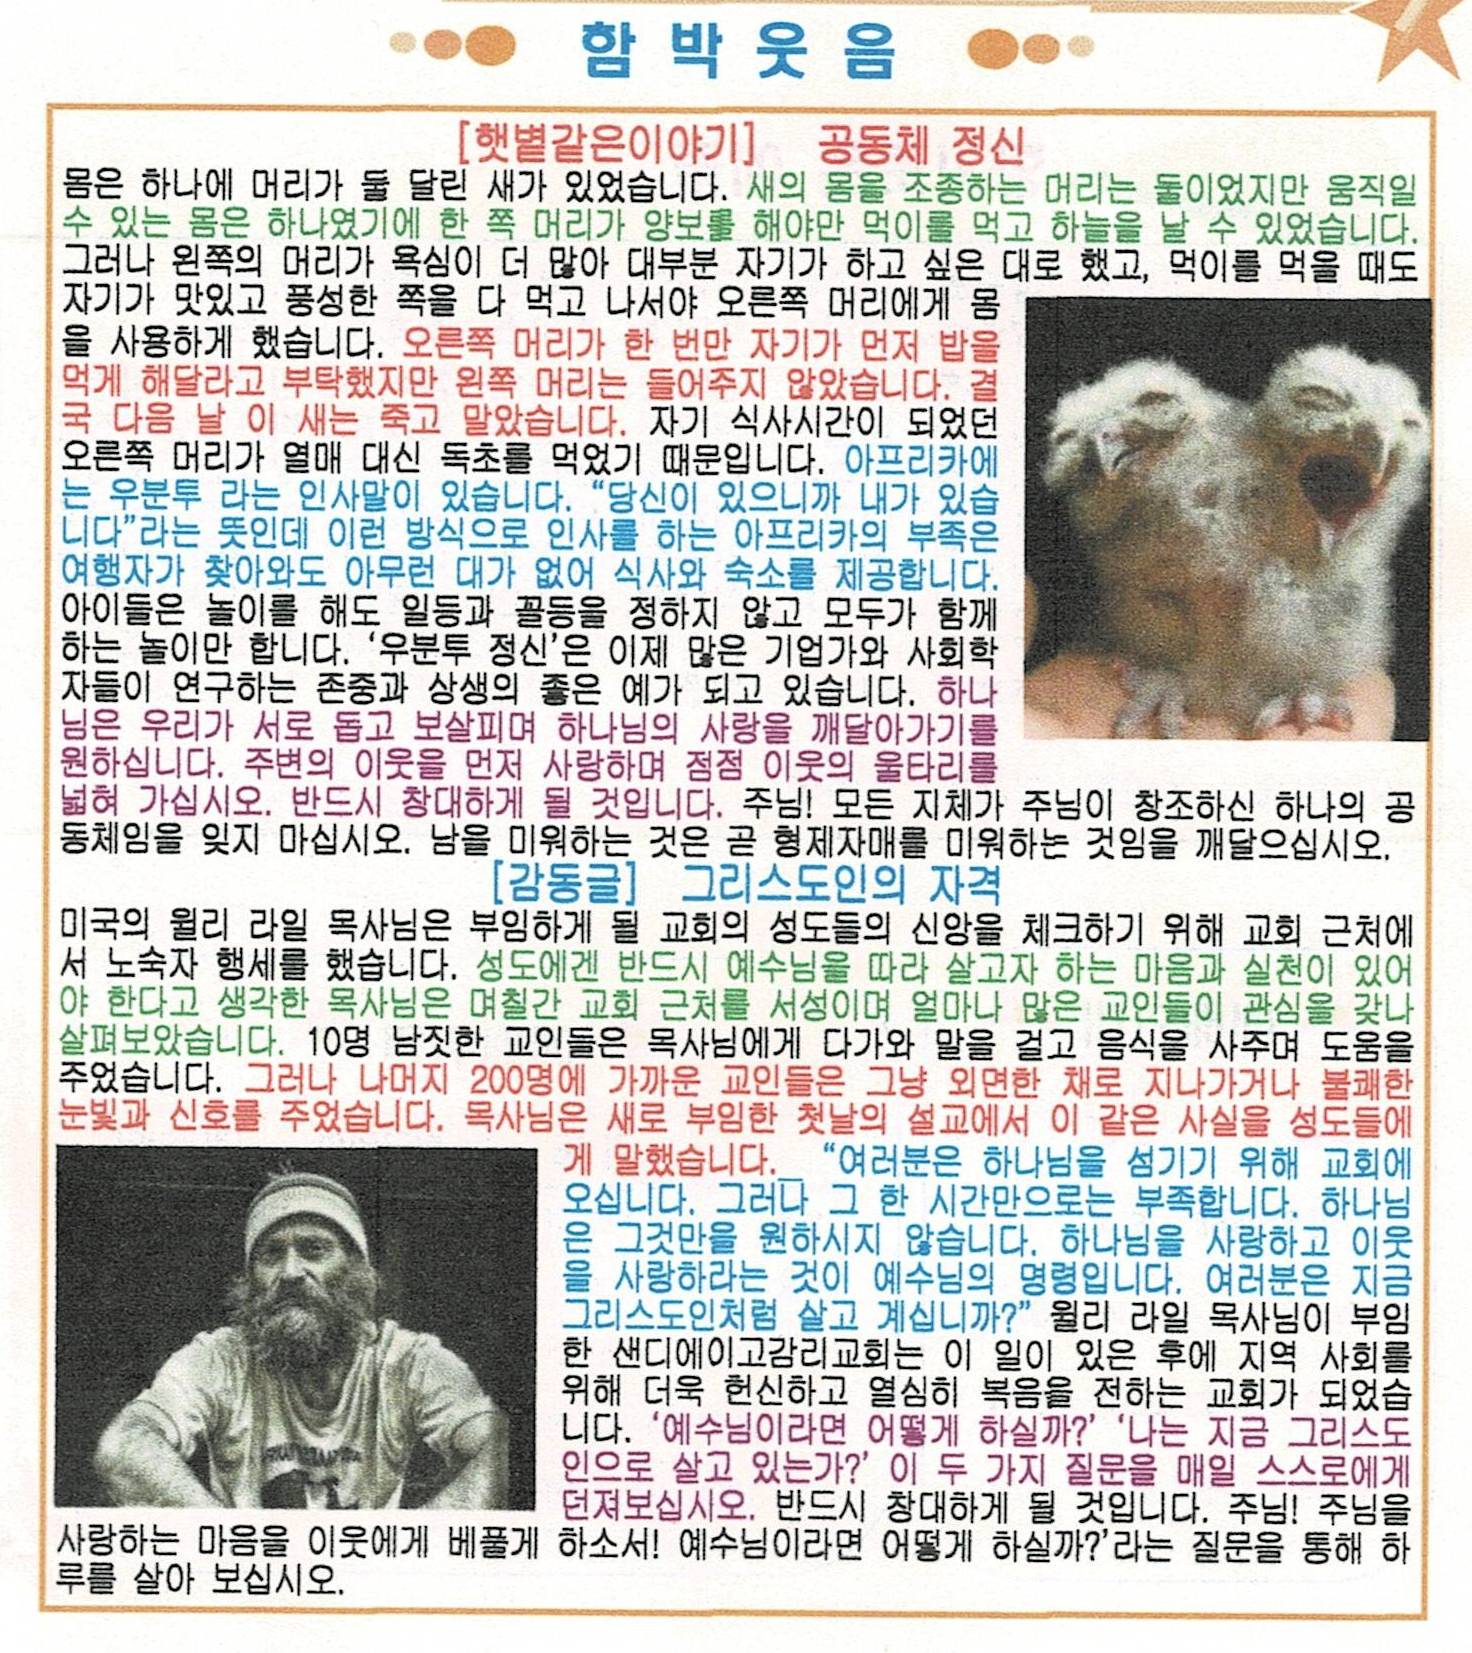 함 박 웃 음
[햇볕같은이야기] 공동체 정신
몸은 하나에 머리가 둘 달린 새가 있었습니다. 새의 몸을 조종하는 머리는 둘이었지만 움직일
수 있는 몸은 하나였기에 한 쪽 머리가 양보를 해야만 먹이를 먹고 하늘을 날 수 있었습니다.
그러나 왼쪽의 머리가 욕심이 더 많아 대부분 자기가 하고 싶은 대로 했고, 먹이를 먹을 때도
자기가 맛있고 풍성한 쪽을 다 먹고 나서야 오른쪽 머리에게 몸
을 사용하게 했습니다. 오른쪽 머리가 한 번만 자기가 먼저 밥을
먹게 해달라고 부탁했지만 왼쪽 머리는 들어주지 않았습니다. 결
국 다음 날 이 새는 죽고 말았습니다. 자기 식사시간이 되었던
오른쪽 머리가 열매 대신 독초를 먹었기 때문입니다. 아프리카에
는 우분투 라는 인사말이 있습니다. “당신이 있으니까 내가 있습
니다”라는 뜻인데 이런 방식으로 인사를 하는 아프리카의 부족은
여행자가 찾아와도 아무런 대가 없어 식사와 숙소를 제공합니다.
아이들은 놀이를 해도 일등과 꼴등을 정하지 않고 모두가 함께
하는 놀이만 합니다. ‘우분투 정신’은 이제 많은 기업가와 사회학
자들이 연구하는 존중과 상생의 좋은 예가 되고 있습니다. 하나
님은 우리가 서로 돕고 보살피며 하나님의 사랑을 깨달아가기를
원하십니다. 주변의 이웃을 먼저 사랑하며 점점 이웃의 울타리를
넓혀 가십시오. 반드시 창대하게 될 것입니다. 주님! 모든 지체가 주님이 창조하신 하나의 공
동체임을 잊지 마십시오. 남을 미워하는 것은 곧 형제자매를 미워하는 것임을 깨달으십시오.
[감동글] 그리스도인의 자격
미국의 윌리 라일 목사님은 부임하게 될 교회의 성도들의 신앙을 체크하기 위해 교회 근처에
서 노숙자 행세를 했습니다. 성도에겐 반드시 예수님을 따라 살고자 하는 마음과 실천이 있어
야 한다고 생각한 목사님은 며칠간 교회 근처를 서성이며 얼마나 많은 교인들이 관심을 갖나
살펴보았습니다. 10명 남짓한 교인들은 목사님에게 다가와 말을 걸고 음식을 사주며 도움을
주었습니다. 그러나 나머지 200명에 가까운 교인들은 그냥 외면한 채로 지나가거나 불쾌한
눈빛과 신호를 주었습니다. 목사님은 새로 부임한 첫날의 설교에서 이 같은 사실을 성도들에
게 말했습니다._ “여러분은 하나님을 섬기기 위해 교회에
오십니다. 그러나 그 한 시간만으로는 부족합니다. 하나님
은 그것만을 원하시지 않습니다. 하나님을 사랑하고 이웃
을 사랑하라는 것이 예수님의 명령입니다. 여러분은 지금
그리스도인처럼 살고 계십니까?” 윌리 라일 목사님이 부임
한 샌디에이고감리교회는 이 일이 있은 후에 지역 사회를
위해 더욱 헌신하고 열심히 복음을 전하는 교회가 되었습
니다. ‘예수님이라면 어떻게 하실까?’ ‘나는 지금 그리스도
인으로 살고 있는가?’ 이 두 가지 질문을 매일 스스로에게
던져보십시오. 반드시 창대하게 될 것입니다. 주님! 주님을
사랑하는 마음을 이웃에게 베풀게 하소서! 예수님이라면 어떻게 하실까?’라는 질문을 통해 하
루를 살아 보십시오.